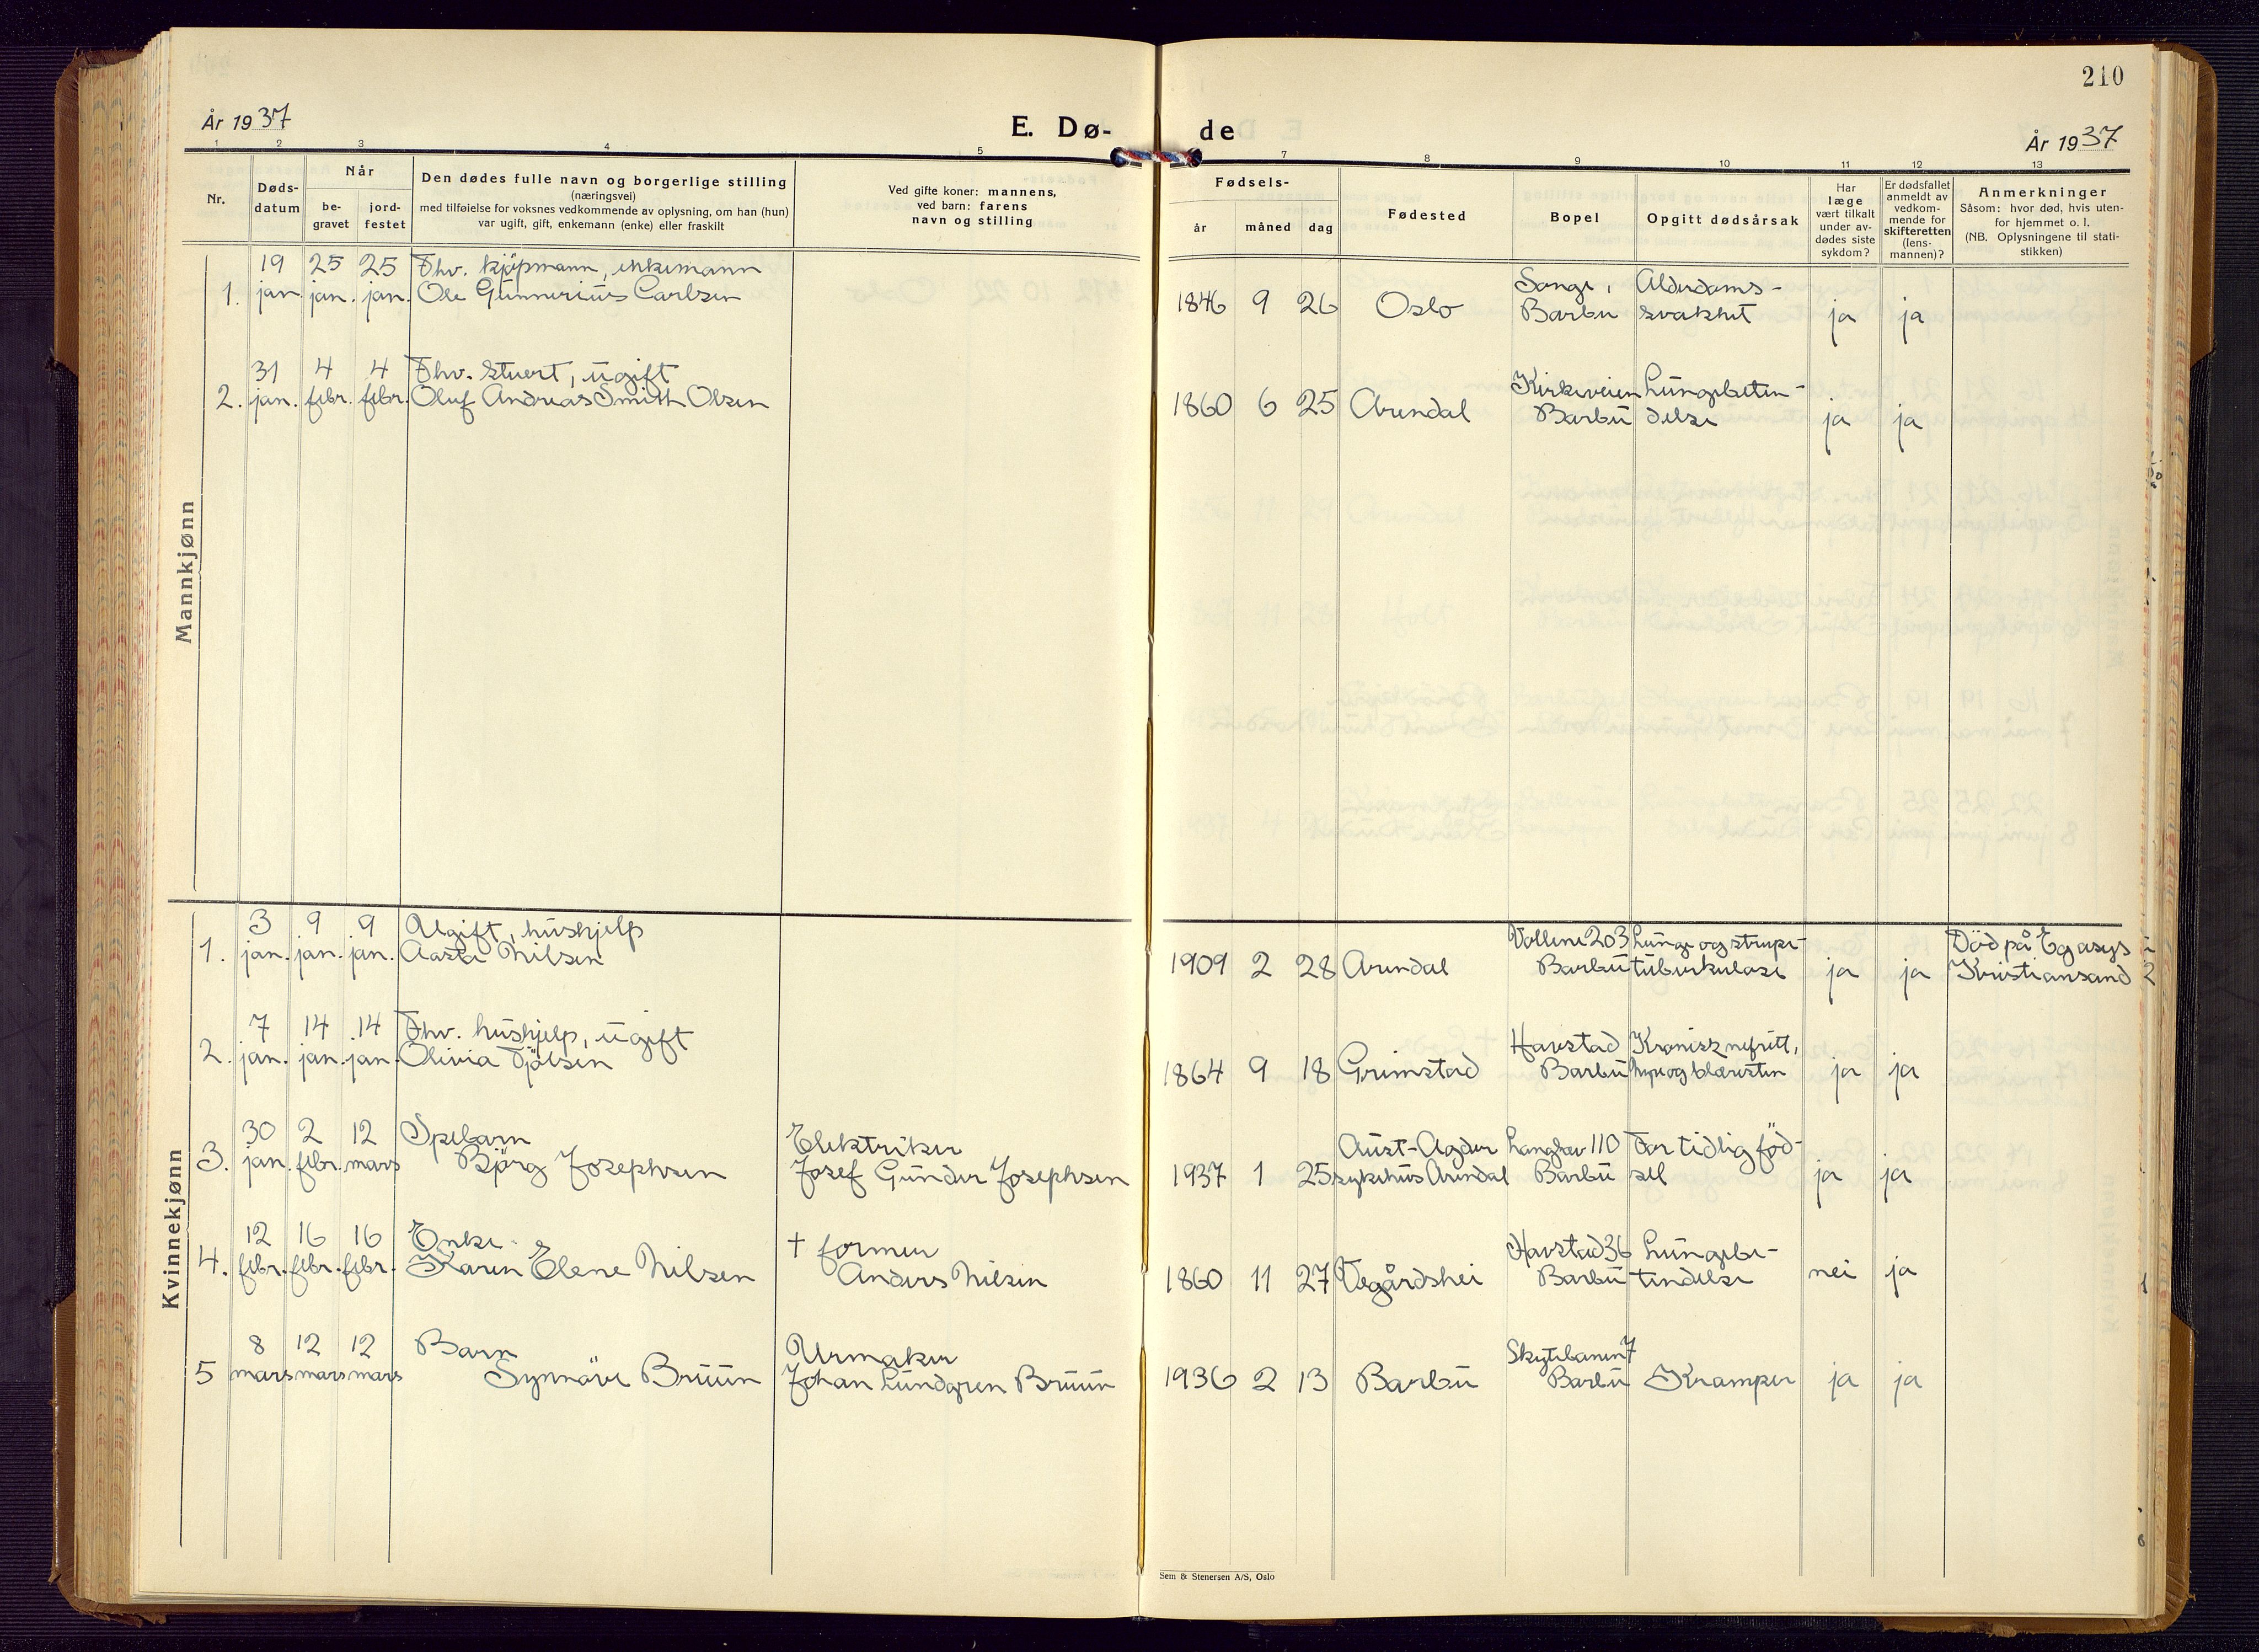 210
År 1937
E. Dø-
de
År 1937
1 2 3 4 5
7 8 9 10 11 12 13
Nr.
Døds-
datum
Når
be-
gravet
jord-
festet
Den dødes fulle navn og borgerlige stilling
(næringsvei)
med tilføielse for voksnes vedkommende av oplysning, om han (hun)
var ugift, gift, enkemann (enke) eller fraskilt
Ved gifte koner: mannens,
ved barn: farens
navn og stilling
Fødsels-
år måned dag
Fødested
Bopel
Opgitt dødsårsak
Har
læge
vært tilkalt
under av-
dødes siste
sykdom?
Er dødsfallet
anmeldt av
vedkom-
mende for
skifteretten
(lens-
mannen)?
Anmerkninger
Såsom: hvor død, hvis uten-
for hjemmet o. l.
(NB. Oplysningene til stati-
stikken)
Mannkjønn
19 25 25 Fhv. kjöpmann, enkemann
1. jan. jan. jan. Ole Gunnerius Carlsen
Songe, Alderdoms-
1846 9 26 Oslo Barbu svakhet ja ja
31 4 4 Fhv. stuert, ugift
2. jan. febr. febr. Oluf Andreas Smith Olsen
Kirkeveien Lungebeten-
1860 6 25 Arendal Barbu delse ja ja
Kvinnekjønn
3 9 9 Ugift, hushjelp
1. jan. jan. jan. Aasta Nilsen
Vollene 203 Lunge og strupe- Död på Eg asyl
1909 2 28 Arendal Barbu tuberkulose ja ja Kristiansand 2
7 14 14 Fhv. hushjelp, ugift
2. jan. jan. jan. Olivia Tjölsen
Havstad Kronisk nefritt,
1864 9 18 Grimstad Barbu nyre og blæresten ja ja
30 2 12 Spebarn Elektriker
3. jan. febr. mars Björg Josephsen Josef Gunder Josephsen
Aust-Agder Langsæv 110 For tidlig föd-
1937 1 25 sykehus Arendal Barbu sel ja ja
12 16 16 Enke † former
4. febr. febr. febr. Karen Elene Nilsen Anders Nilsen
Havstad 36 Lungebe-
1860 11 27 Vegårdshei Barbu tendelse nei ja 1
8 12 12 Barn Urmaker
5 mars mars mars Synnöve Bruun Johan Lundgren Bruun
Skytebanen 7
1936 2 13 Barbu Barbu Kramper ja ja
Sem & Stenersen A/S, Oslo